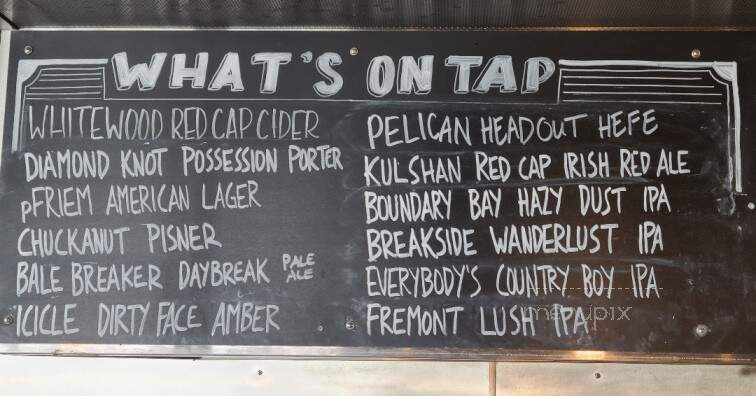 WHAT'S ON TAP
WHITEWOOD RED CAP CIDER
DIAMOND KNOT POSSESSION PORTER
pFRIEM AMERICAN LAGER
CHUCKANUT PISNER
BALE BREAKER DAYBREAK PALE ALE
ICICLE DIRTY FACE AMBER
PELICAN HEADOUT HEFE
KULSHAN RED CAP IRISH RED ALE
BOUNDARY BAY HAZY DUST IPA
BREAKSIDE WANDERLUST IPA
EVERYBODY'S COUNTRY BOY IPA
FREMONT LUSH IPA
menupix